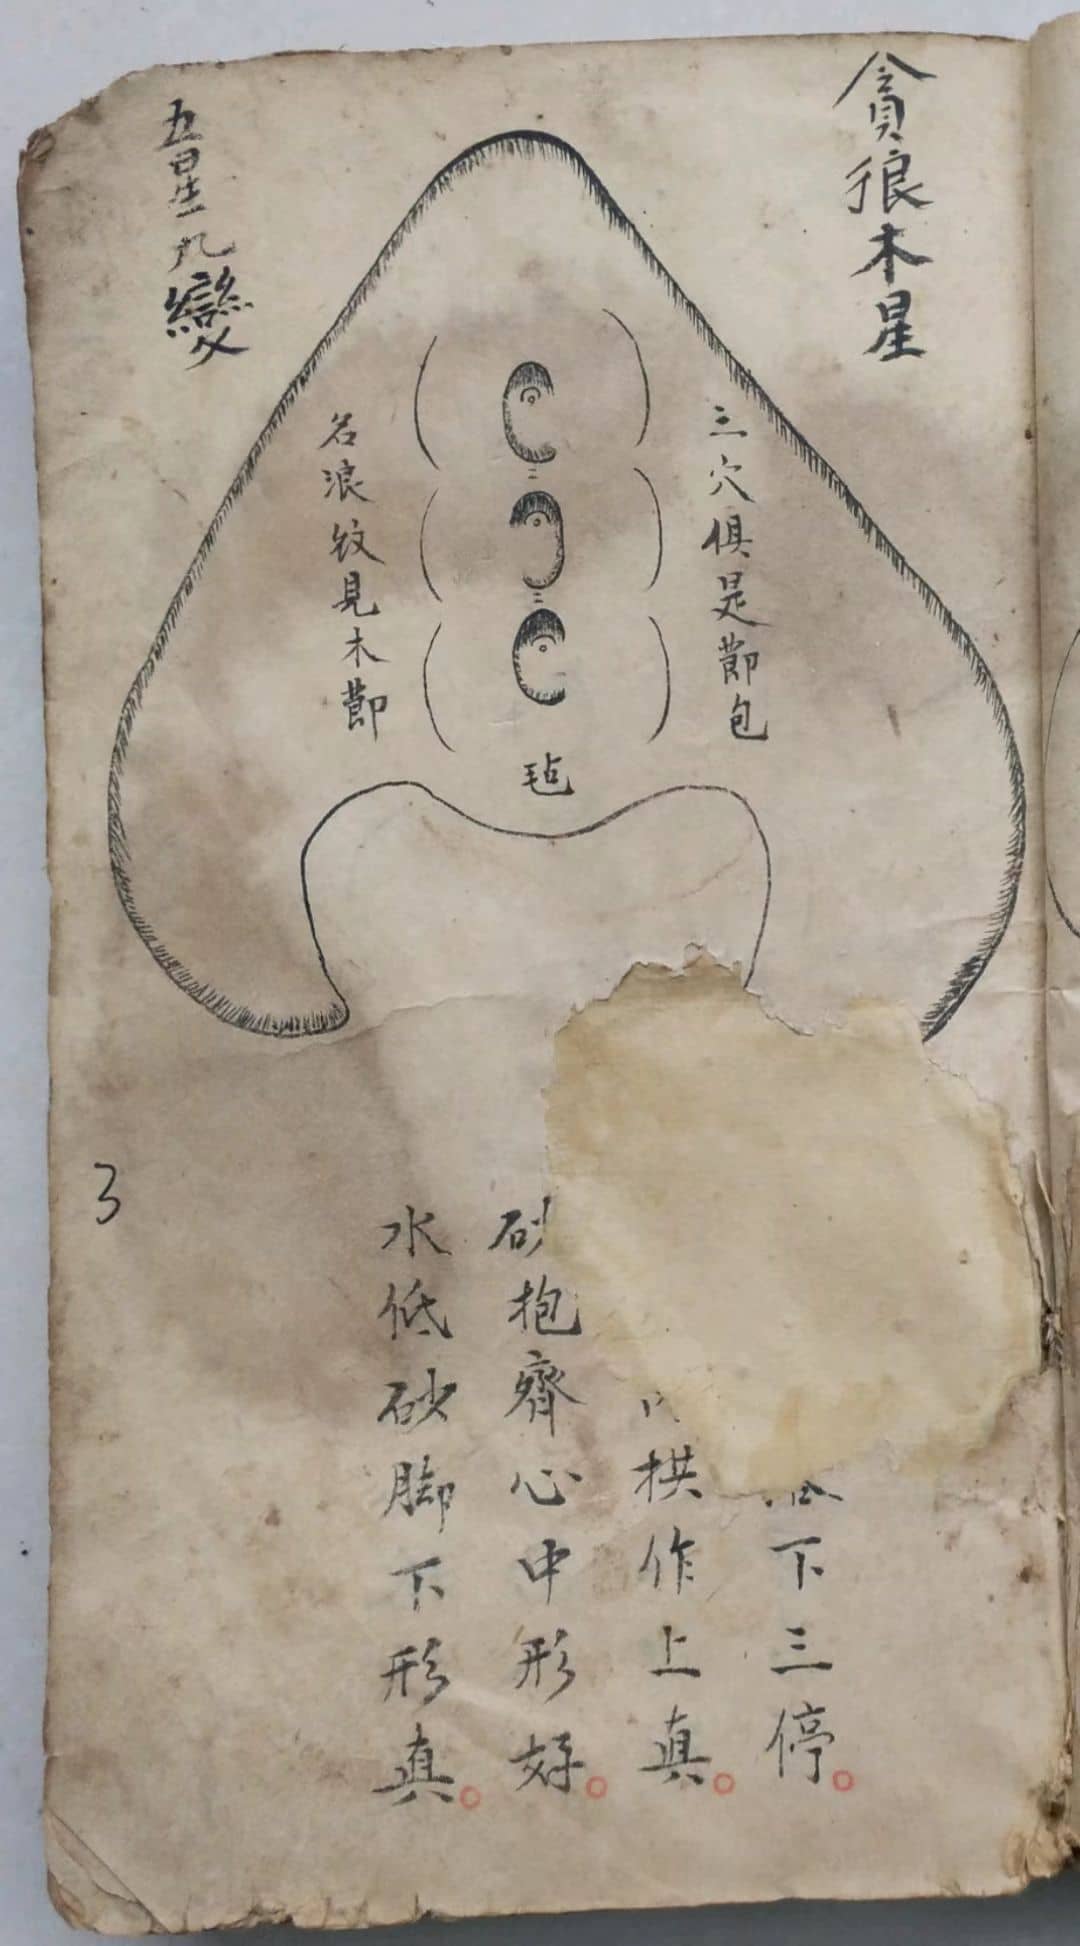 貪狼木星
三穴俱是節包
毡
名浪紋見木節
五星九變
下三停
拱作上真
砂抱齊心中形好
水低砂脚下形真
3